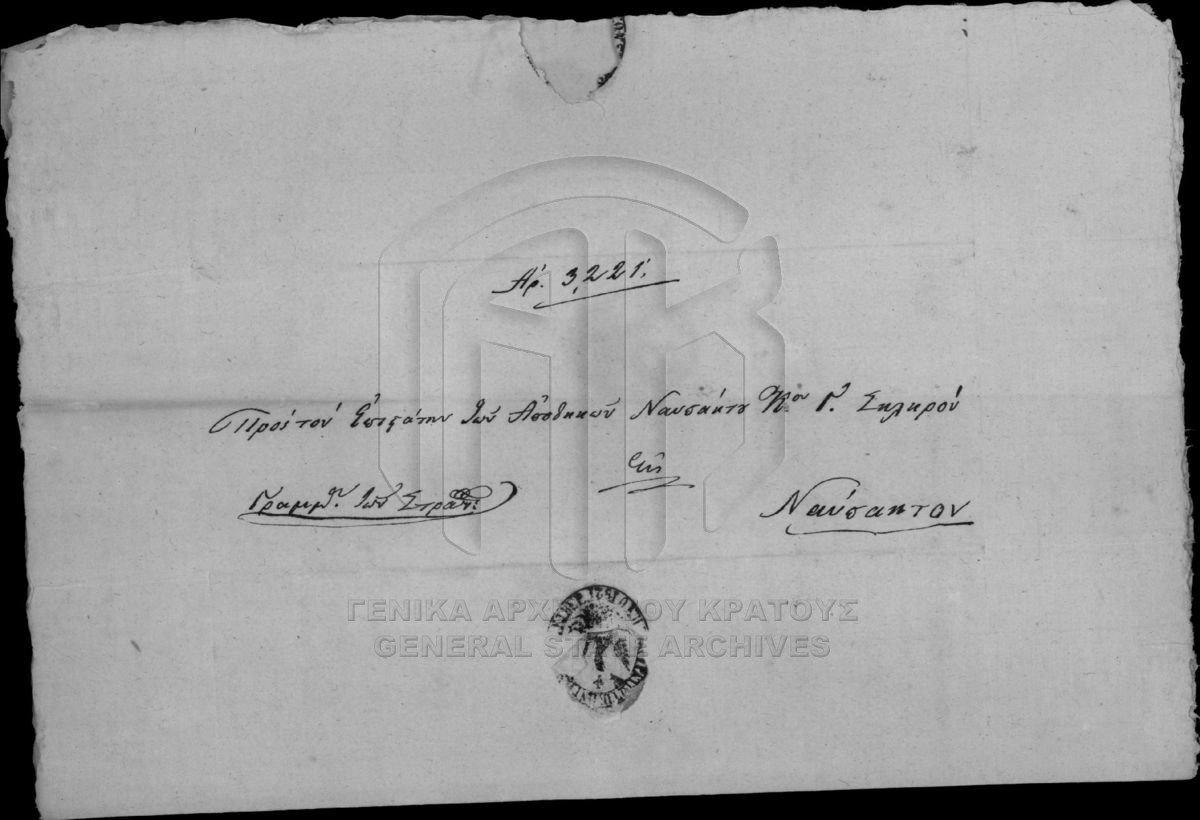 Ἀρ. 3,221.
Πρὸς τὸν Ἐπιστάτην τῶν Ἀποθηκῶν Ναυπάκτου Κον Γ. Σκληρόν
εἰς
Γραμμ. τῶν Στρατ: Ναύπακτον
ΓΕΝΙΚΑ ΑΡΧΕΙΑ ΤΟΥ ΚΡΑΤΟΥΣ
GENERAL STATE ARCHIVES